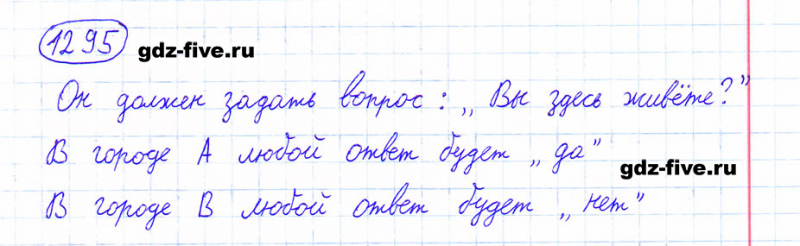 1295 gdz-five.ru
Он должен задать вопрос: „Вы здесь живёте?”
В городе А любой ответ будет „да”
gdz-five.ru
В городе В любой ответ будет „нет”